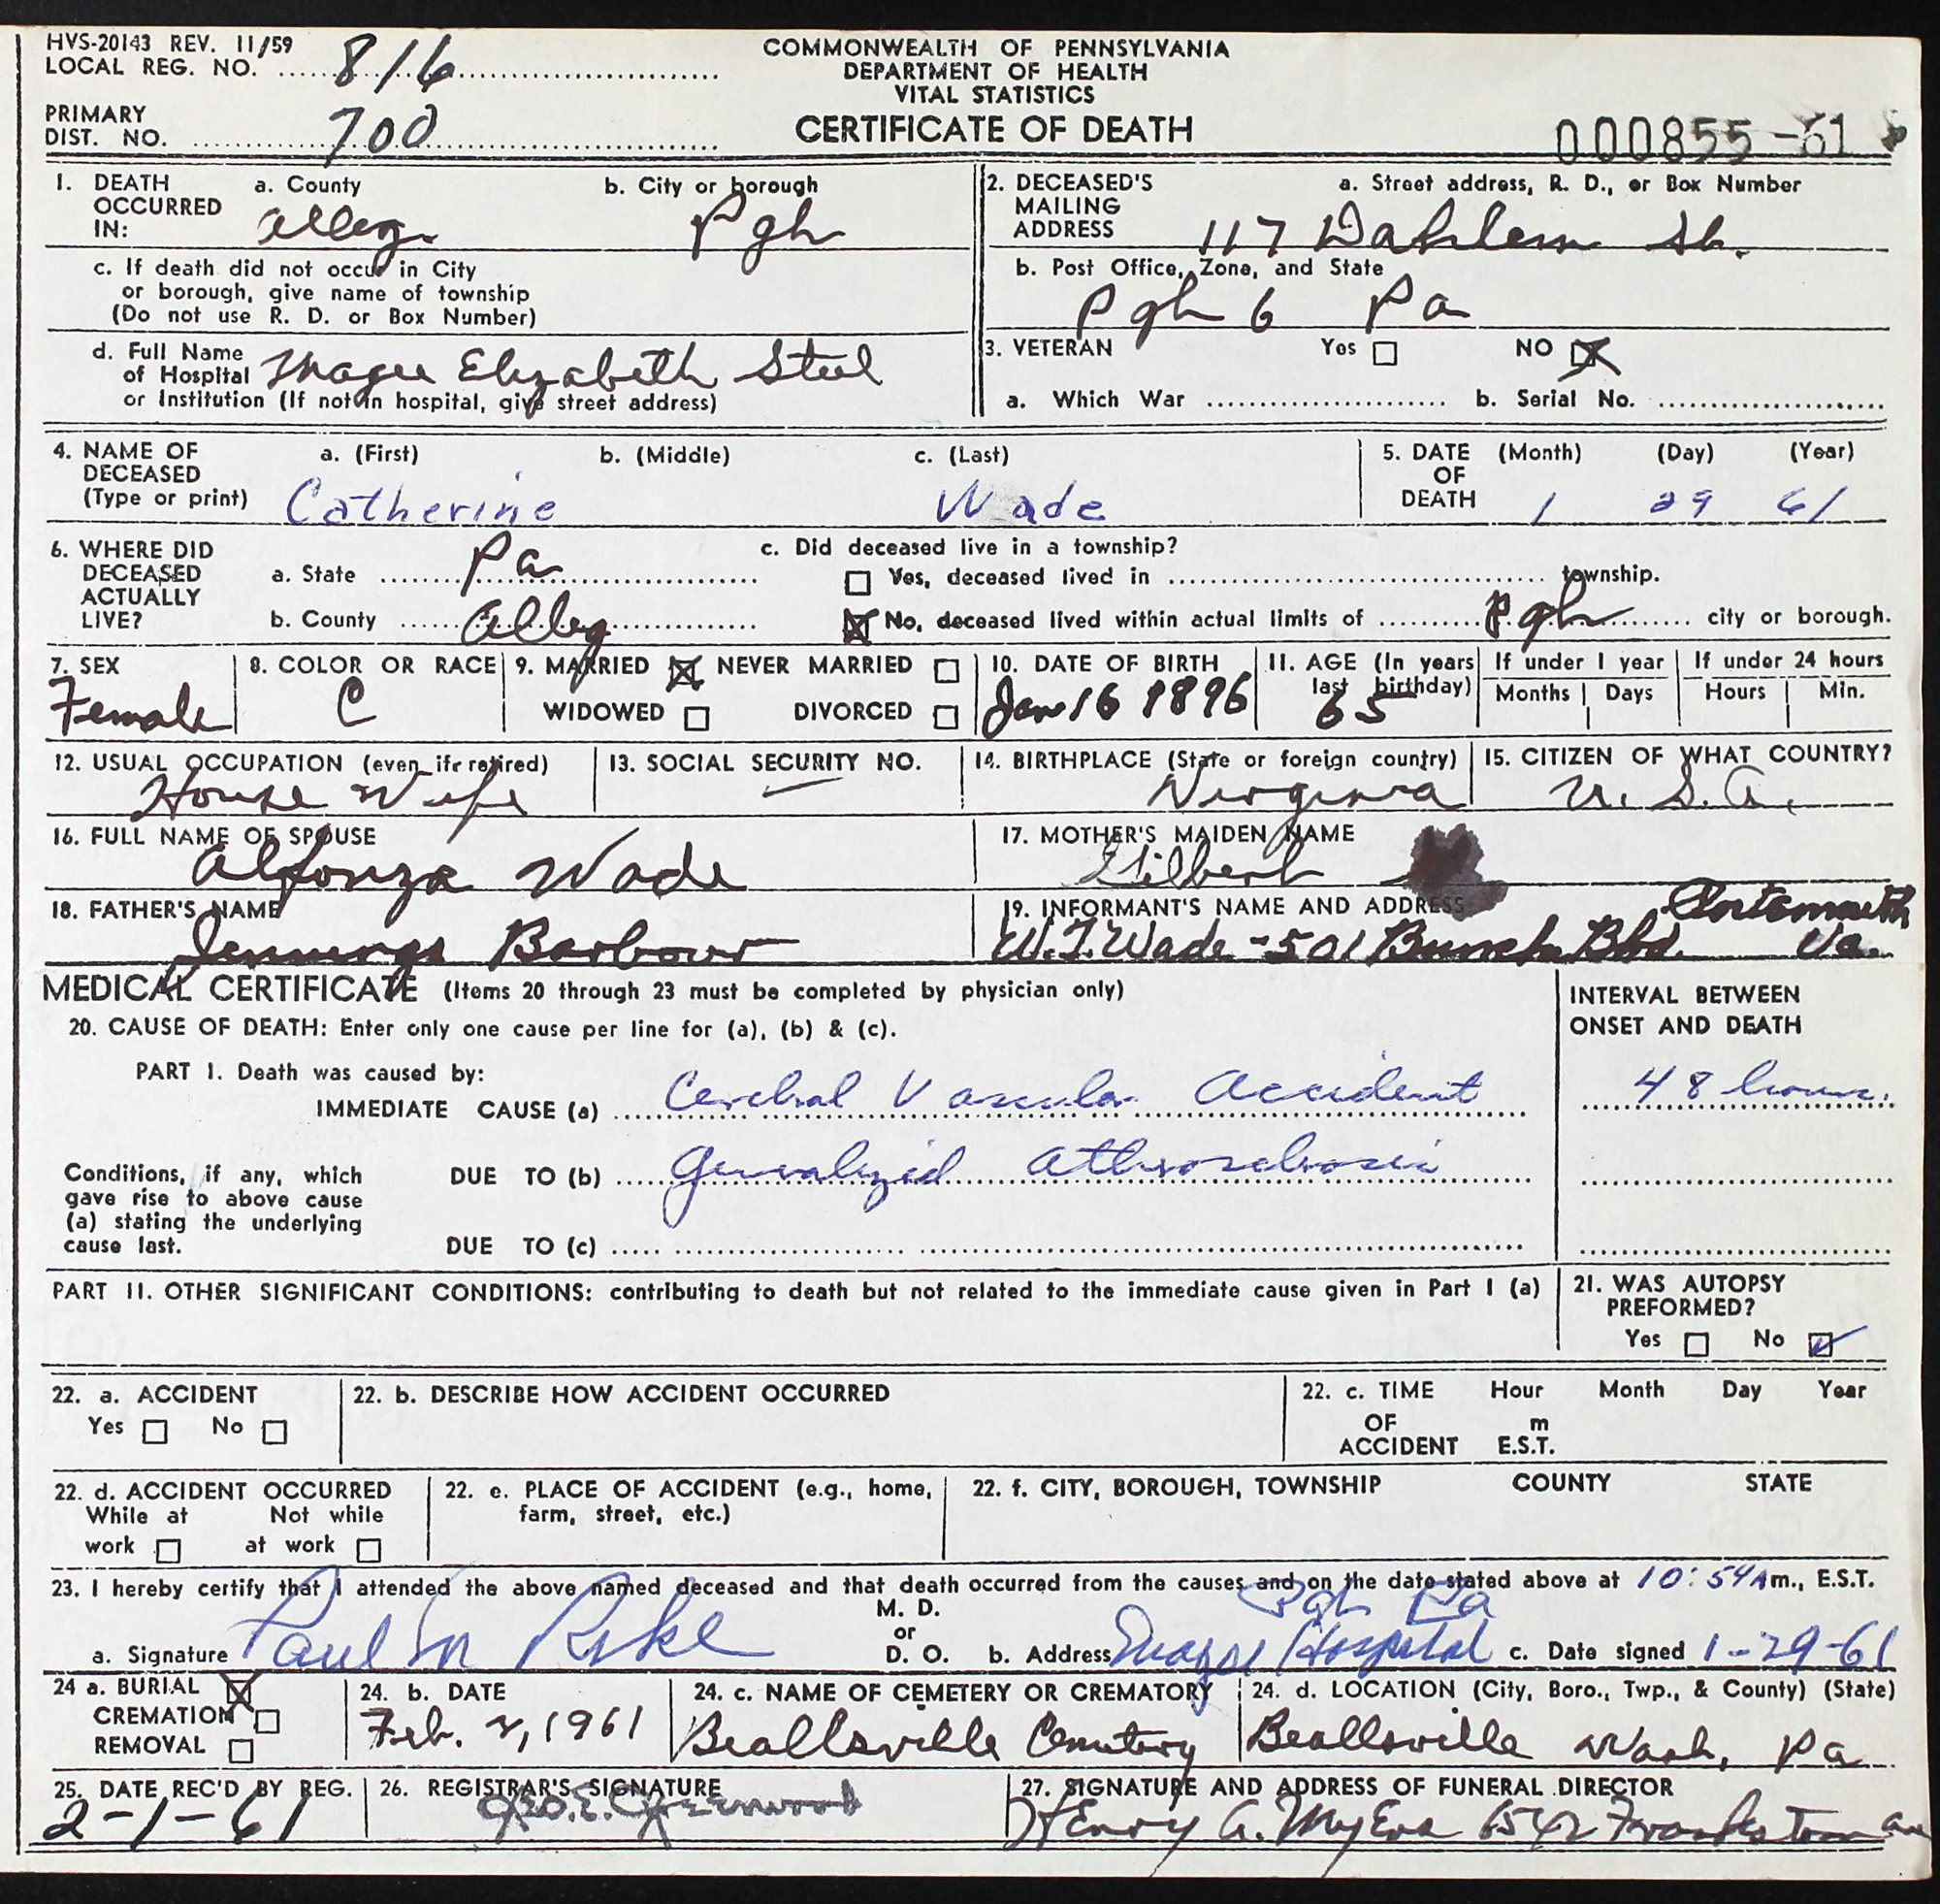 HVS-20143 REV. 11/59
LOCAL REG. NO. 816
PRIMARY DIST. NO. 700
COMMONWEALTH OF PENNSYLVANIA
DEPARTMENT OF HEALTH
VITAL STATISTICS
CERTIFICATE OF DEATH
000855-61
1. DEATH OCCURRED IN: a. County b. City or borough
Alleg. Pgh
c. If death did not occur in City
or borough, give name of township
(Do not use R. D. or Box Number)
d. Full Name of Hospital Magee Elizabeth Steel
or Institution (If not in hospital, give street address)
2. DECEASED'S MAILING ADDRESS a. Street address, R. D., or Box Number
117 Dahlem St.
b. Post Office, Zone, and State
Pgh 6 Pa
3. VETERAN Yes NO
a. Which War b. Serial No.
4. NAME OF DECEASED (Type or print) a. (First) b. (Middle) c. (Last)
Catherine Wade
5. DATE OF DEATH (Month) (Day) (Year)
1 29 61
6. WHERE DID DECEASED ACTUALLY LIVE?
a. State Pa
b. County Alleg
c. Did deceased live in a township?
Yes, deceased lived in township.
No, deceased lived within actual limits of Pgh city or borough.
7. SEX
Female
8. COLOR OR RACE
C
9. MARRIED NEVER MARRIED
WIDOWED DIVORCED
10. DATE OF BIRTH
Jan 16 1896
11. AGE (In years last birthday)
65
If under 1 year
Months Days
If under 24 hours
Hours Min.
12. USUAL OCCUPATION (even if retired)
House Wife
13. SOCIAL SECURITY NO.
—
14. BIRTHPLACE (State or foreign country)
Virginia
15. CITIZEN OF WHAT COUNTRY?
U. S. A.
16. FULL NAME OF SPOUSE
Alfonza Wade
17. MOTHER'S MAIDEN NAME
Gilbert
18. FATHER'S NAME
Jennings Barbour
19. INFORMANT'S NAME AND ADDRESS
W.T. Wade - 501 Bunche Blvd. Portsmouth Va.
MEDICAL CERTIFICATE (Items 20 through 23 must be completed by physician only)
20. CAUSE OF DEATH: Enter only one cause per line for (a), (b) & (c).
INTERVAL BETWEEN
ONSET AND DEATH
PART I. Death was caused by:
IMMEDIATE CAUSE (a) Cerebral Vascular Accident 48 hours.
Conditions, if any, which
gave rise to above cause
(a) stating the underlying
cause last.
DUE TO (b) Generalized Atherosclerosis
DUE TO (c)
PART II. OTHER SIGNIFICANT CONDITIONS: contributing to death but not related to the immediate cause given in Part I (a)
21. WAS AUTOPSY
PREFORMED?
Yes No
22. a. ACCIDENT
Yes No
22. b. DESCRIBE HOW ACCIDENT OCCURRED
22. c. TIME OF ACCIDENT Hour Month Day Year
m
E.S.T.
22. d. ACCIDENT OCCURRED
While at work Not while at work
22. e. PLACE OF ACCIDENT (e.g., home,
farm, street, etc.)
22. f. CITY, BOROUGH, TOWNSHIP COUNTY STATE
23. I hereby certify that I attended the above named deceased and that death occurred from the causes and on the date stated above at 10:54 A m., E.S.T.
Pgh Pa
a. Signature Paul M M. D. or D. O. b. Address Magee Hospital c. Date signed 1-29-61
24 a. BURIAL
CREMATION
REMOVAL
24. b. DATE
Feb. 2, 1961
24. c. NAME OF CEMETERY OR CREMATORY
Beallsville Cemetery
24. d. LOCATION (City, Boro., Twp., & County) (State)
Beallsville Wash, Pa
25. DATE REC'D BY REG.
2-1-61
26. REGISTRAR'S SIGNATURE
Geo. E. Greenwood
27. SIGNATURE AND ADDRESS OF FUNERAL DIRECTOR
Henry A. Myers 6542 Frankstown Ave